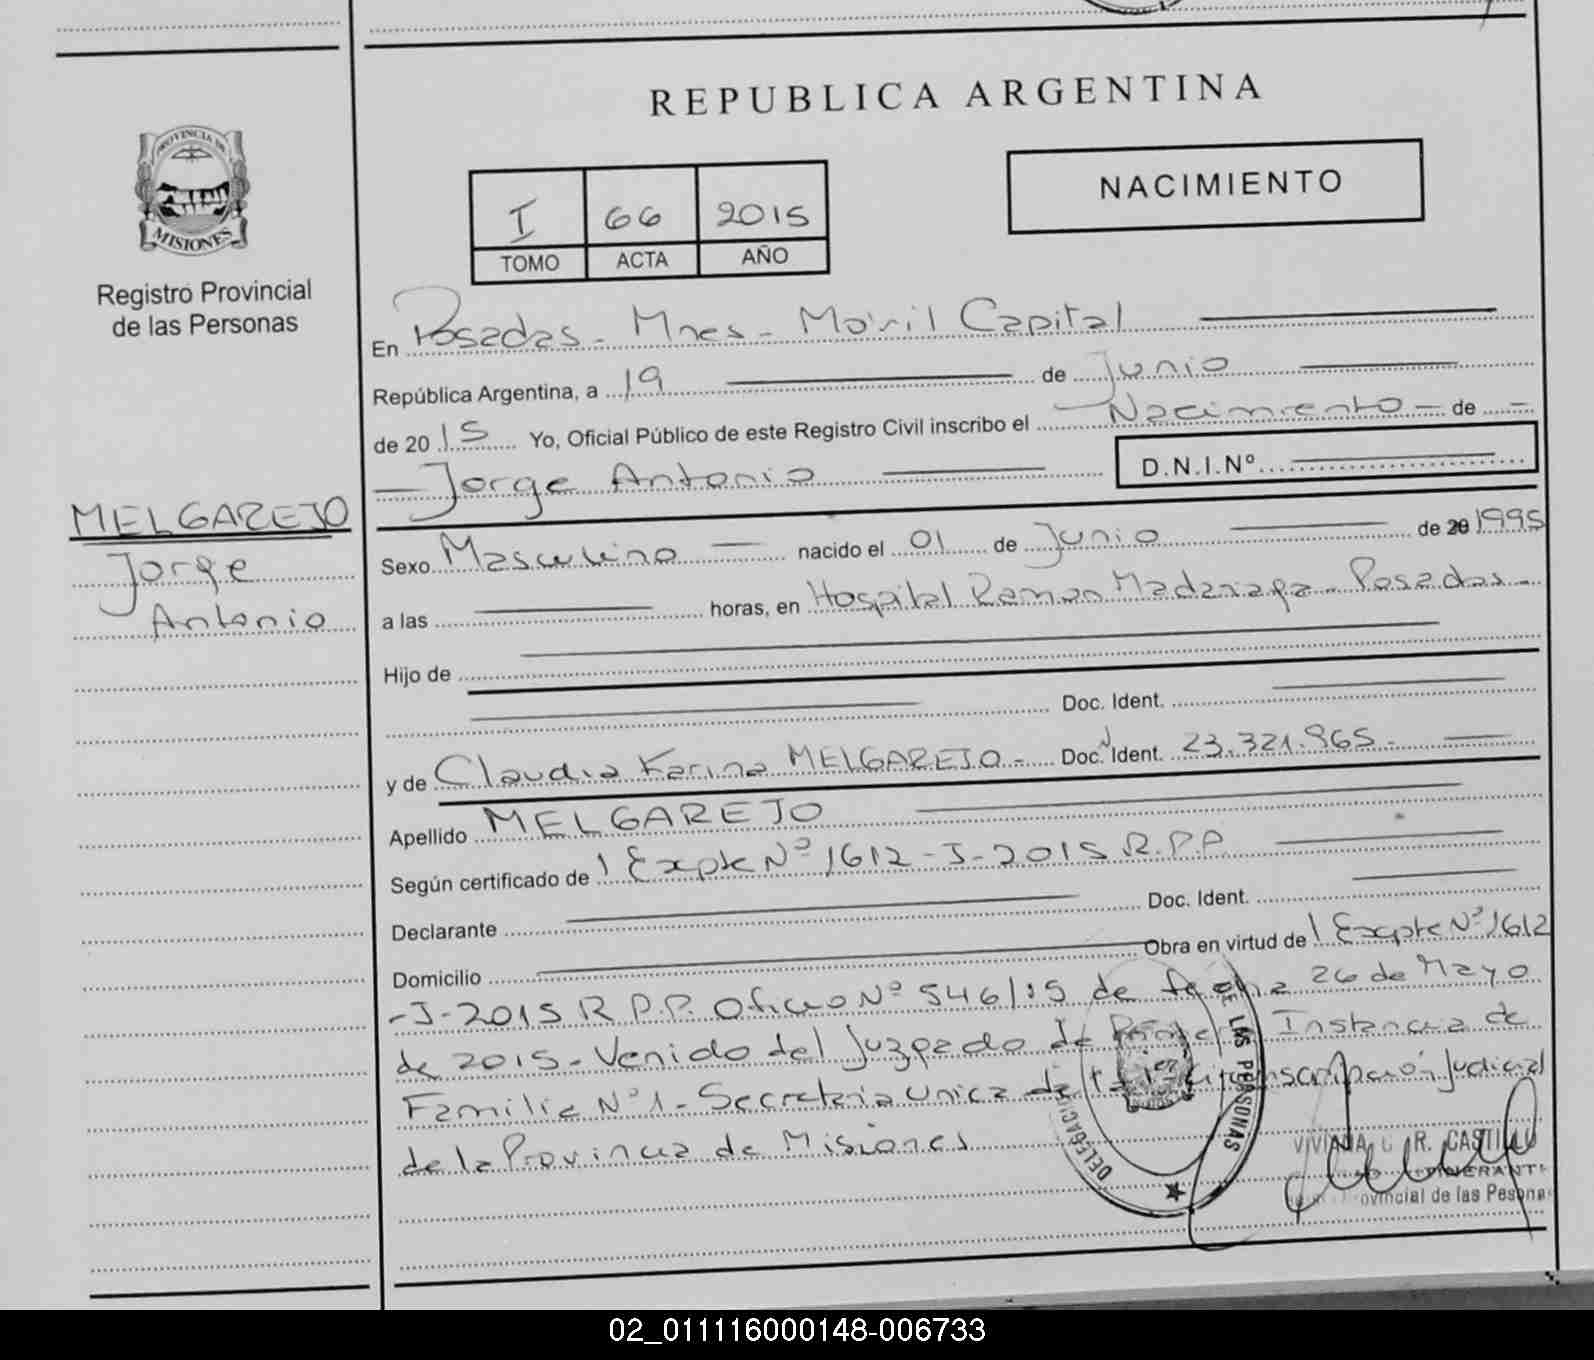 REPUBLICA ARGENTINA
PROVINCIA DE
MISIONES
Registro Provincial
de las Personas
NACIMIENTO
I 66 2015
TOMO ACTA AÑO
En Posadas - Mnes - Móvil Capital
República Argentina, a 19 de Junio
de 2015 Yo, Oficial Público de este Registro Civil inscribo el Nacimiento - de -
Jorge Antonio D.N.I.Nº
MELGAREJO
Jorge
Antonio
Sexo Masculino nacido el 01 de Junio de 20 1995
a las horas, en Hospital Ramon Madariaga - Posadas -
Hijo de
Doc. Ident.
y de Claudia Karina MELGAREJO - Doc. Ident. 23.321.965 -
Apellido MELGAREJO
Según certificado de Expte Nº 1612 - J - 2015 R.P.P
Declarante Doc. Ident.
Domicilio Obra en virtud de Expte Nº 1612
- J - 2015 R.P.P. Oficio Nº 546/15 de fecha 26 de Mayo
de 2015 - Venido del Juzgado de Primera Instancia de
Familia Nº 1 - Secretaria unica de la 1º circunscripción Judicial
de la Provincia de Misiones
DELEGACI DE LAS PERSONAS
VIVIANA R. CASTILLO
ovincial de las Pesona
02_011116000148-006733